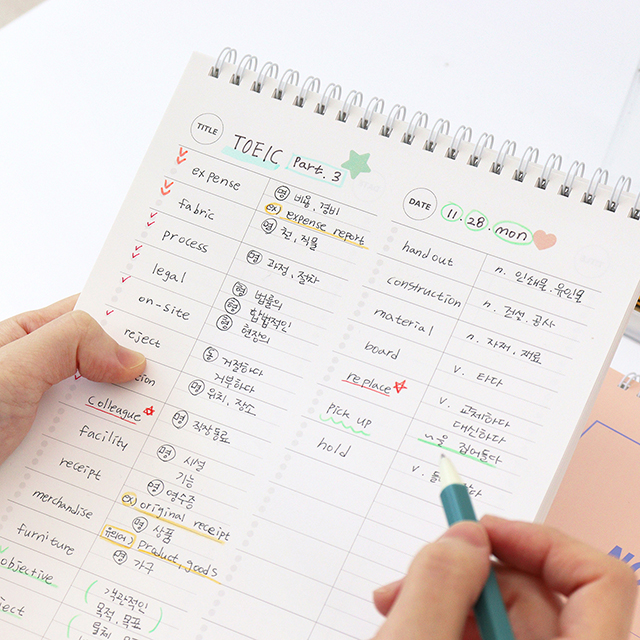 TITLE
TOEIC Part. 3
expense
명 비용, 경비
ex) expense report
fabric
명 천, 직물
process
명 과정, 절차
legal
형 법률의
합법적인
on-site
형 현장의
reject
동 거절하다
거부하다
명 위치, 장소
Colleague
명 직장동료
facility
명 시설
기능
receipt
명 영수증
ex) original receipt
merchandise
명 상품
유의어) product, goods
furniture
명 가구
objective
객관적인
목적, 목표
DATE
11. 28. mon
handout
n. 인쇄물, 유인물
construction
n. 건설, 공사
material
n. 자재, 재료
board
v. 타다
replace
v. 교체하다
대신하다
Pick up
집어들다
hold
v.